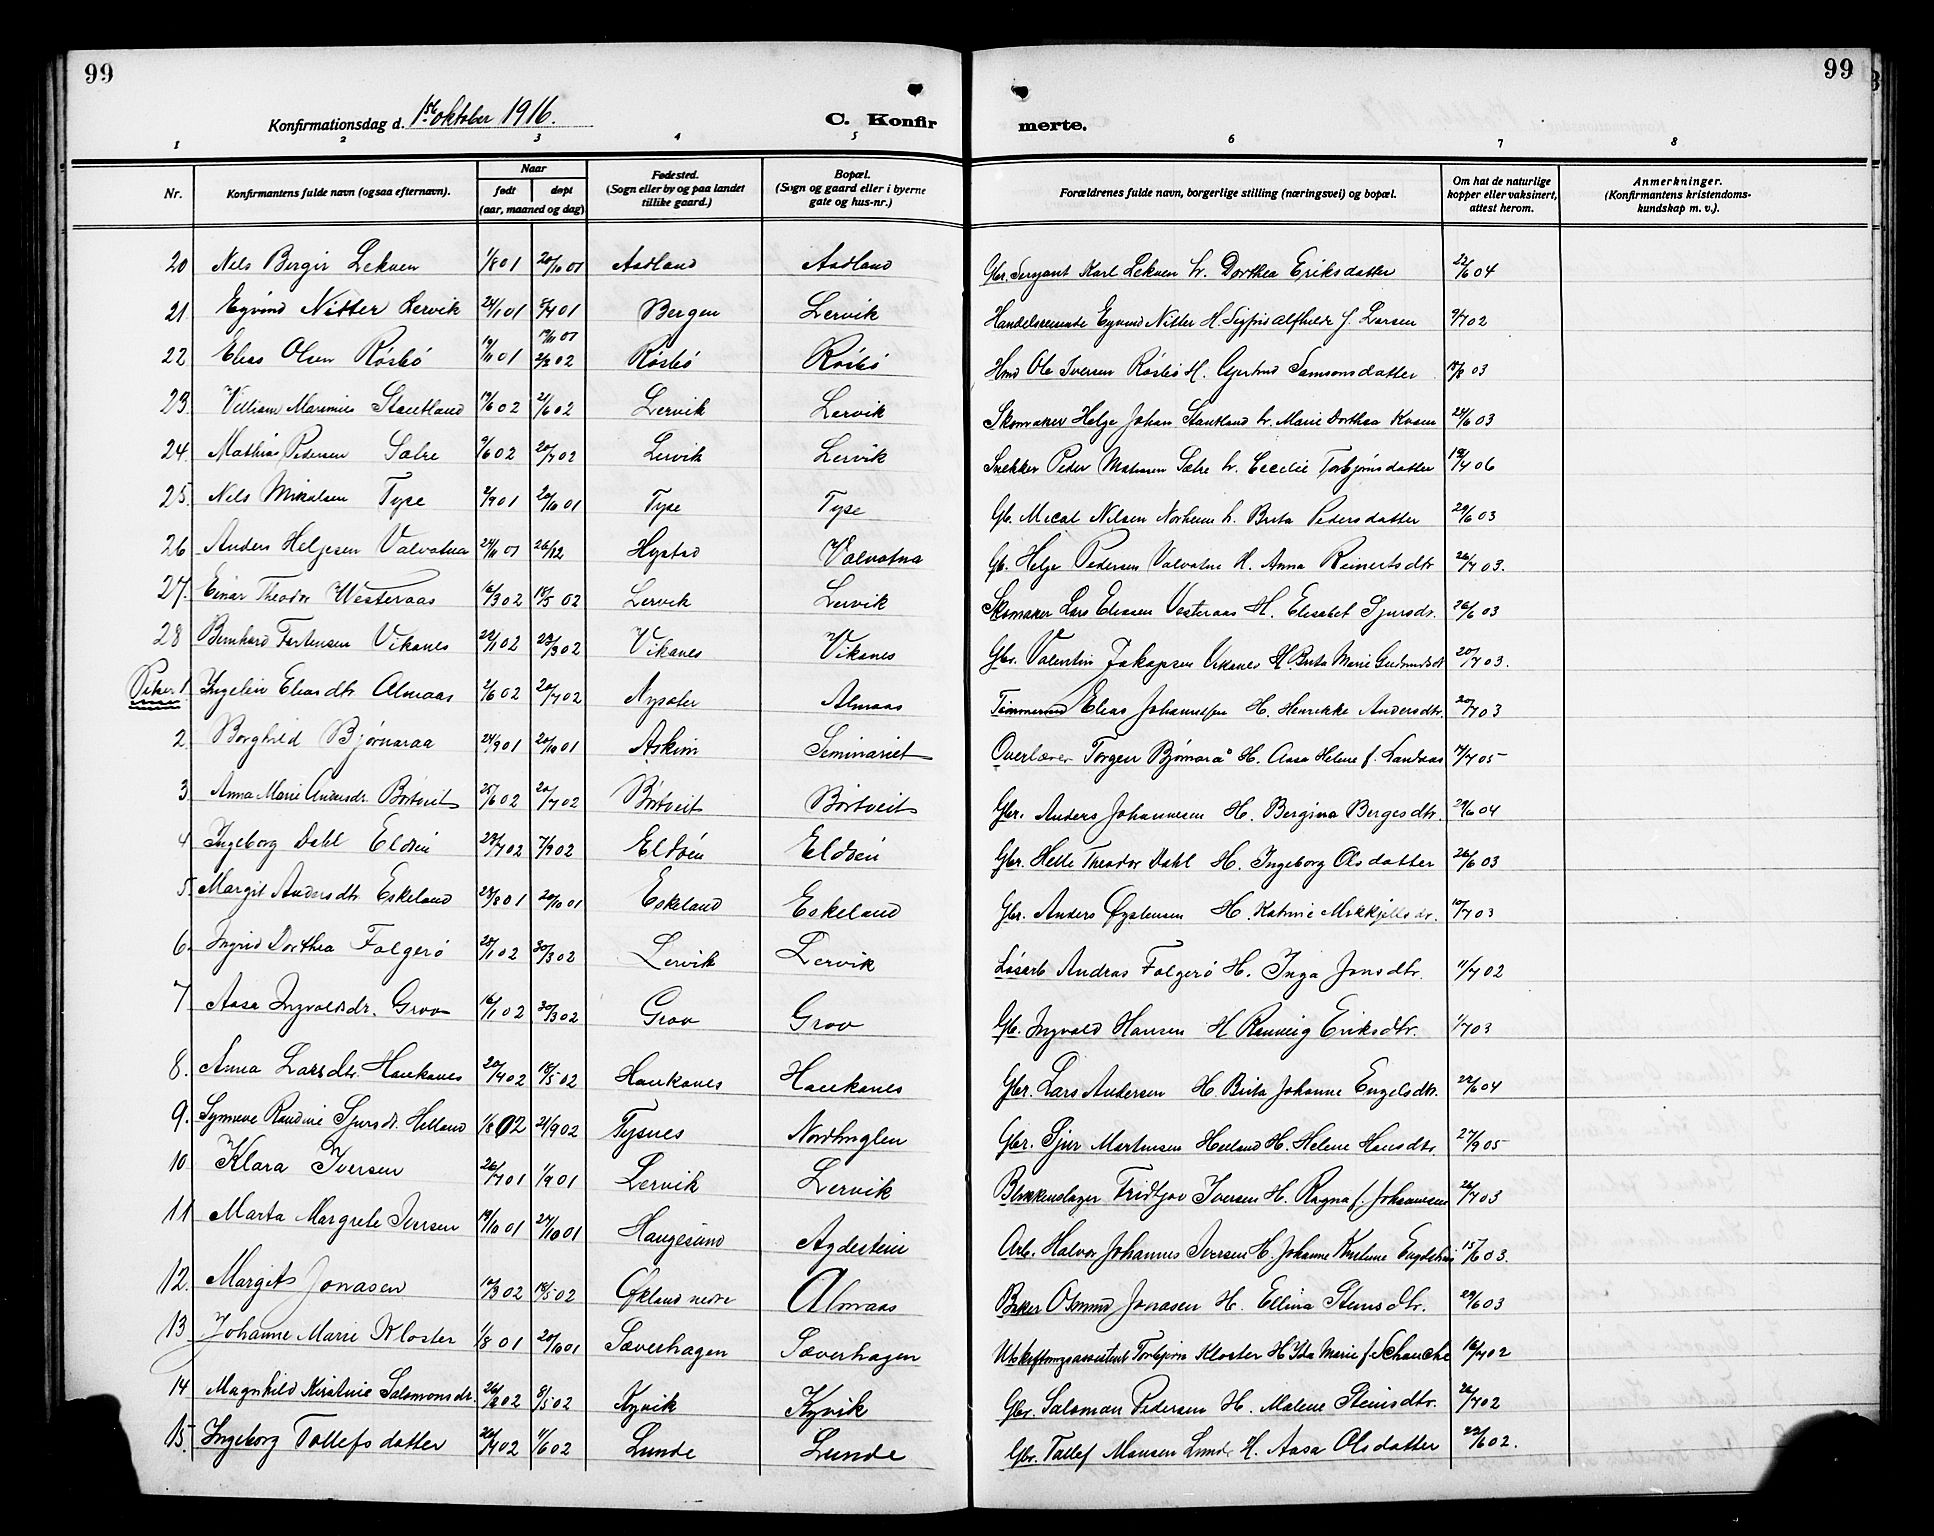 99
99
Konfirmationsdag d. 1ste oktober 1916.
C. Konfir
merte.
1 2 3 4 5 6 7 8
Nr. Konfirmantens fulde navn (ogsaa efternavn). Naar født døpt (aar, maaned og dag) Fødested. (Sogn eller by og paa landet tillike gaard.) Bopæl. (Sogn og gaard eller i byerne gate og hus-nr.) Forældrenes fulde navn, borgerlige stilling (næringsvei) og bopæl. Om hat de naturlige kopper eller vaksinert, attest herom. Anmerkninger. (Konfirmantens kristendomskundskap m. v.).
20 Nils Berger Lekven 1/8 01 20/10 01 Aadland Aadland Gbr. Sergant Karl Lekven h. Dorthea Eriksdatter 22/6 04
21 Eyvind Nitter Lervik 24/1 01 8/4 01 Bergen Lervik Handelsreisende Eyvind Nitter H. Sigfrid Alfhilde f. Larsen 9/7 02
22 Elias Olsen Røsbø 14/11 01 17/11 01 2/3 02 Røsbø Røsbø Hmd Ole Iversen Røsbø H. Gjertrud Samsonsdatter 18/8 03
23. Villiam Marinius Stautland 19/6 02 21/6 02 Lervik Lervik Skomaker Helge Johan Stautland h. Marie Dorthea Kvam 24/6 03
24. Mathias Pedersen Sætre 9/6 02 20/7 02 Lervik Lervik Snekker Peder Matiasen Sætre h. Cecilie Torbjørnsdatter 19/4 06
25. Nils Mikalsen Tyse 2/9 01 20/10 01 Tyse Tyse Gb. Mical Nilsen Norheim h. Brita Pedersdatter 29/6 03
26 Anders Helgesen Valvatna 24/11 01 26/12 Hystad Valvatna Gb. Helge Pedersen Valvatne H. Anna Reinertsdtr 26/7 03.
27. Einar Theodor Westeraas 16/3 02 18/5 02 Lervik Lervik Skomaker Lars Eliasen Vesteraas H. Elisabet Sjursdr. 26/6 03
28 Bernhard Fortunsen Vikanes 22/1 02 23/3 02 Vikanes Vikanes Gbr. Valentin Jakopsen Vikanes H Brita Marie Gudmundsdt 20/7 03.
Piker. 1 Ingelin Eliasdtr Almaas 2/6 02 20/7 02 Nysæter Almaas Tømmermd Elias Johannesen H. Henrikke Andersdtr. 20/7 03
2 Borghild Bjørnaraa 24/9 01 20/10 01 Askim Seminariet Overlærer Torgeir Bjørnarå H. Aasa Helene f. Landaas 17/7 05
3. Anna Marie Andersdr. Børtveit 25/6 02 20/7 02 Børtveit Børtveit Gbr. Anders Johannesen H. Bergina Bergesdtr. 29/6 04
4 Ingeborg Dahl Eldøin 23/7 02 7/9 02 Eldøen Eldøen Gbr. Helle Theodor Dahl H. Ingeborg Olsdatter 26/6 03
5. Margit Andersdtr Eskeland 23/8 01 20/10 01 Eskeland Eskeland Gbr. Anders Øystensen H. Katrine Mikkjelsdr. 10/7 03
6. Ingrid Dorthea Folgerø 28/1 02 30/3 02 Lervik Lervik Løsarb Andreas Folgerø H. Inga Jonsdtr. 11/7 02
7 Aasa Ingvaldsdr. Grov 16/1 02 30/3 02 Grov Grov Gb. Ingvald Hansen H Ranveig Eriksdtr. 1/7 03
8. Anna Larsdtr. Haukanes 20/4 02 18/5 02 Haukanes Haukanes Gbr. Lars Andersen H. Brita Johanne Engelsdtr. 22/6 04
9. Synneve Randine Sjursdt. Helland 1/8 02 21/9 02 Tysnes Nordhuglen Gbr. Sjur Martinsen Helland H. Helene Hansdtr. 27/9 05
10 Klara Iversen 26/7 01 1/9 01 Lervik Lervik Blikkenslager Fridtjov Iversen H. Ragna f. Johannesen 26/7 03
11 Marta Margrete Iversen 19/10 01 27/10 01 Haugesund Agdestein Arb. Halvor Johannes Iversen H. Johanne Knutine Engdstein 15/6 03.
12. Margit Jonasen 12/3 02 18/5 02 Økland nedre Almaas Baker Osmund Jonasen H. Ellina Steinsdtr. 29/6 03
13. Johanne Marie Kloster 1/8 01 20/10 01 Sæverhagen Sæverhagen Utskiftningsassistent Torbjørn Kloster H Ida Marie f. Schanche 16/7 02
14 Magnhild Kirstine Salomonsdr. 26/2 02 8/5 02 Kyvik Kyvik Gbr. Salomon Pedersen H. Malene Steinsdtr. 26/7 02
15. Ingeborg Tollefsdatter 26/4 02 11/6 02 Lunde Lunde Gbr. Tollef Monsen Lunde H. Aasa Olsdatter 22/6 02.